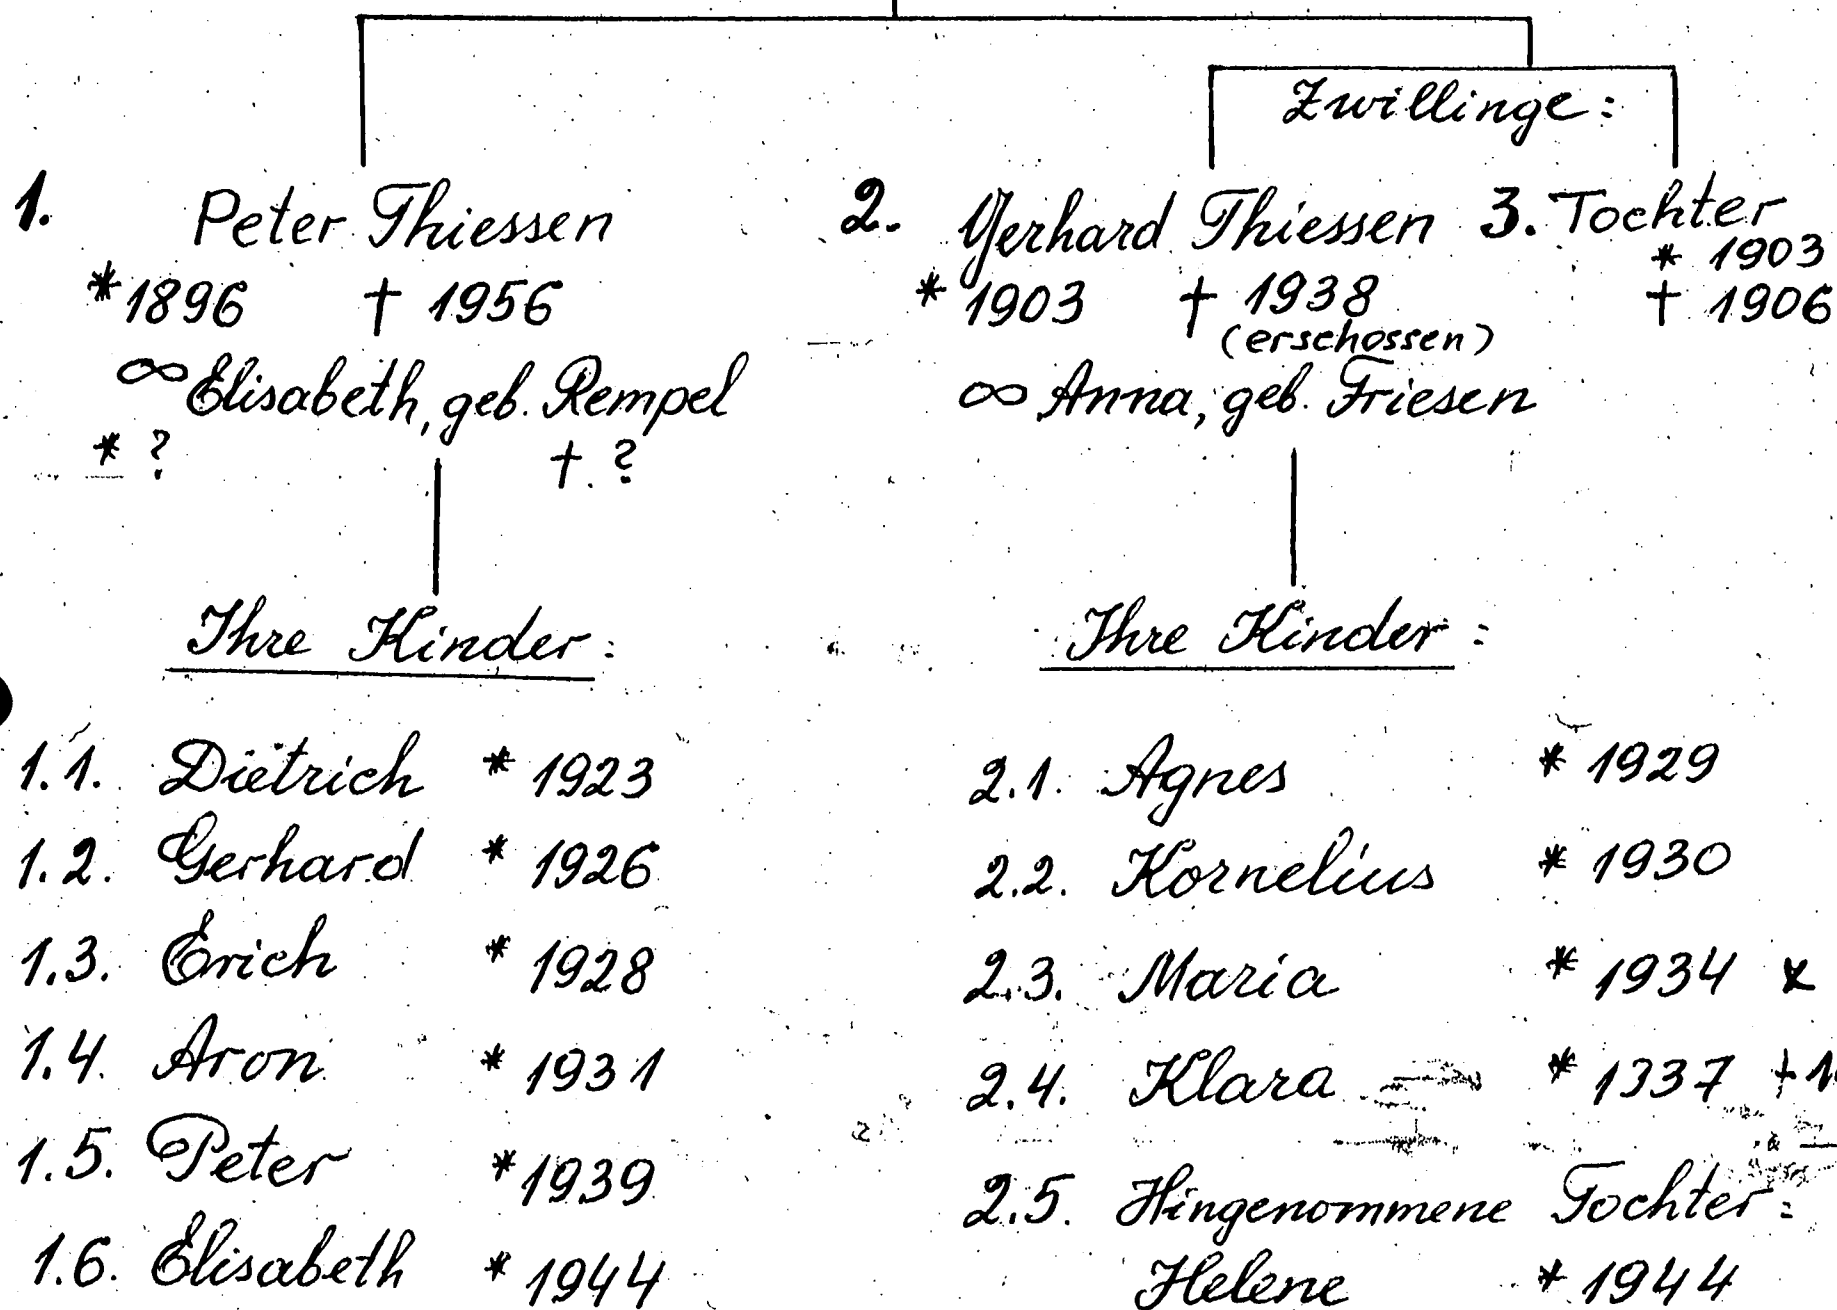 Zwillinge:
1. Peter Thiessen
* 1896 † 1956
∞ Elisabeth, geb. Rempel
* ? †. ?
Ihre Kinder:
1.1. Dietrich * 1923
1.2. Gerhard * 1926
1.3. Erich * 1928
1.4. Aron * 1931
1.5. Peter * 1939
1.6. Elisabeth * 1944
2. Gerhard Thiessen
* 1903 † 1938
(erschossen)
∞ Anna, geb. Friesen
Ihre Kinder:
2.1. Agnes * 1929
2.2. Kornelius * 1930
2.3. Maria * 1934 x
2.4. Klara * 1337 †
2.5. Hingenommene Tochter:
Helene * 1944
3. Tochter
* 1903
† 1906